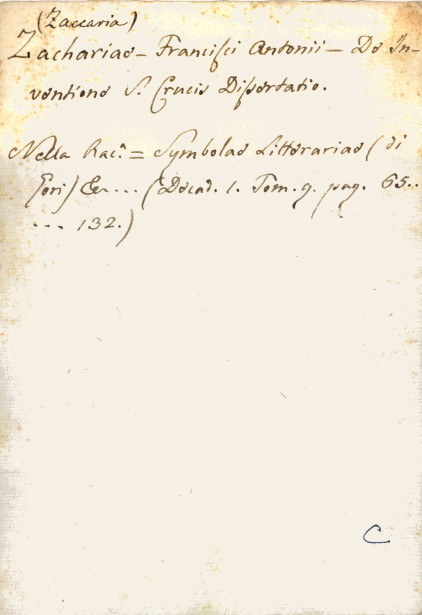 (Zaccaria)
Zachariae - Francisci Antonii - De In-
ventione S. Crucis Dissertatio.
Nella Rac.ª = Symbolae Litterariae (di
Gori) &a .... (Decad. 1. Tom. 9. pag. 65..
... 132.)
C